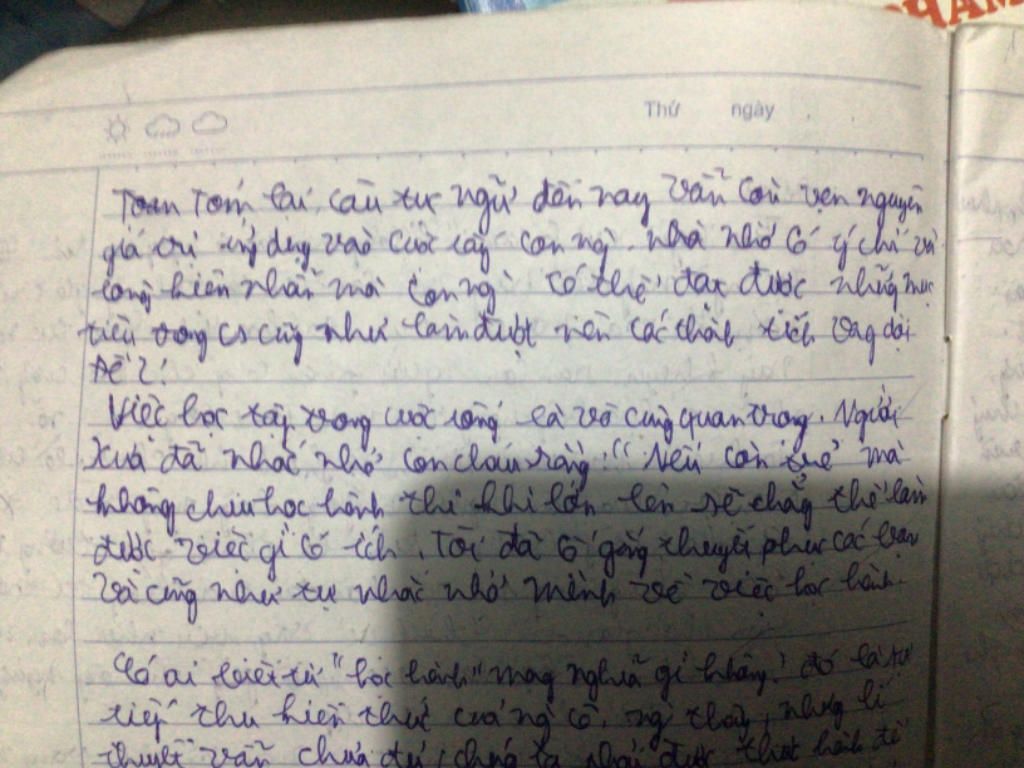 HAM
Thứ ngày
Tóm lại, câu tục ngữ đến nay vẫn còn vẹn nguyên
giá trị dụng vào cuộc con ng. nhờ có ý chí và
lòng kiên nhẫn mà con ng có thể đạt được những mục
tiêu trong cs cũng như làm được nên các thành tích vang dội
Đề 2:
Việc học tập trong cuộc sống là vô cùng quan trọng. Người
xưa đã nhắc nhở con cháu rằng: "Nếu còn trẻ mà
không chịu học hành thì khi lớn lên sẽ chẳng thể làm
được việc gì có ích. Tôi đã cố gắng thuyết phục các bạn
và cũng như tự nhắc nhở mình về việc học hành.
Có ai biết từ "học hành" mang nghĩa gì không? đó là sự
tiếp thu kiến thức của ng cô, ng thầy, nhưng lí
thuyết vẫn chưa đủ, chúng ta phải được thực hành để